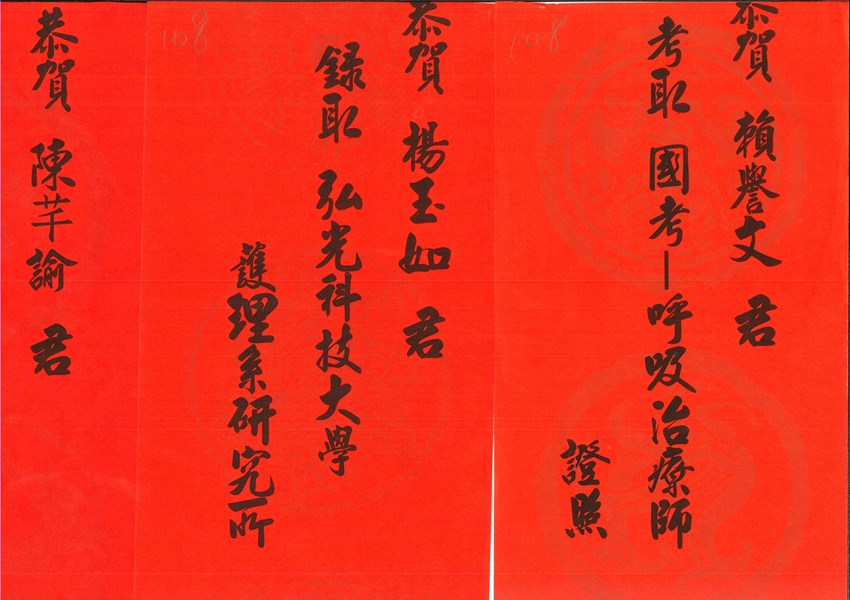 恭賀 賴譽文 君
考取 國考—呼吸治療師
證照
108
恭賀 楊玉如 君
錄取 弘光科技大學
護理系研究所
108
恭賀 陳芊諭 君